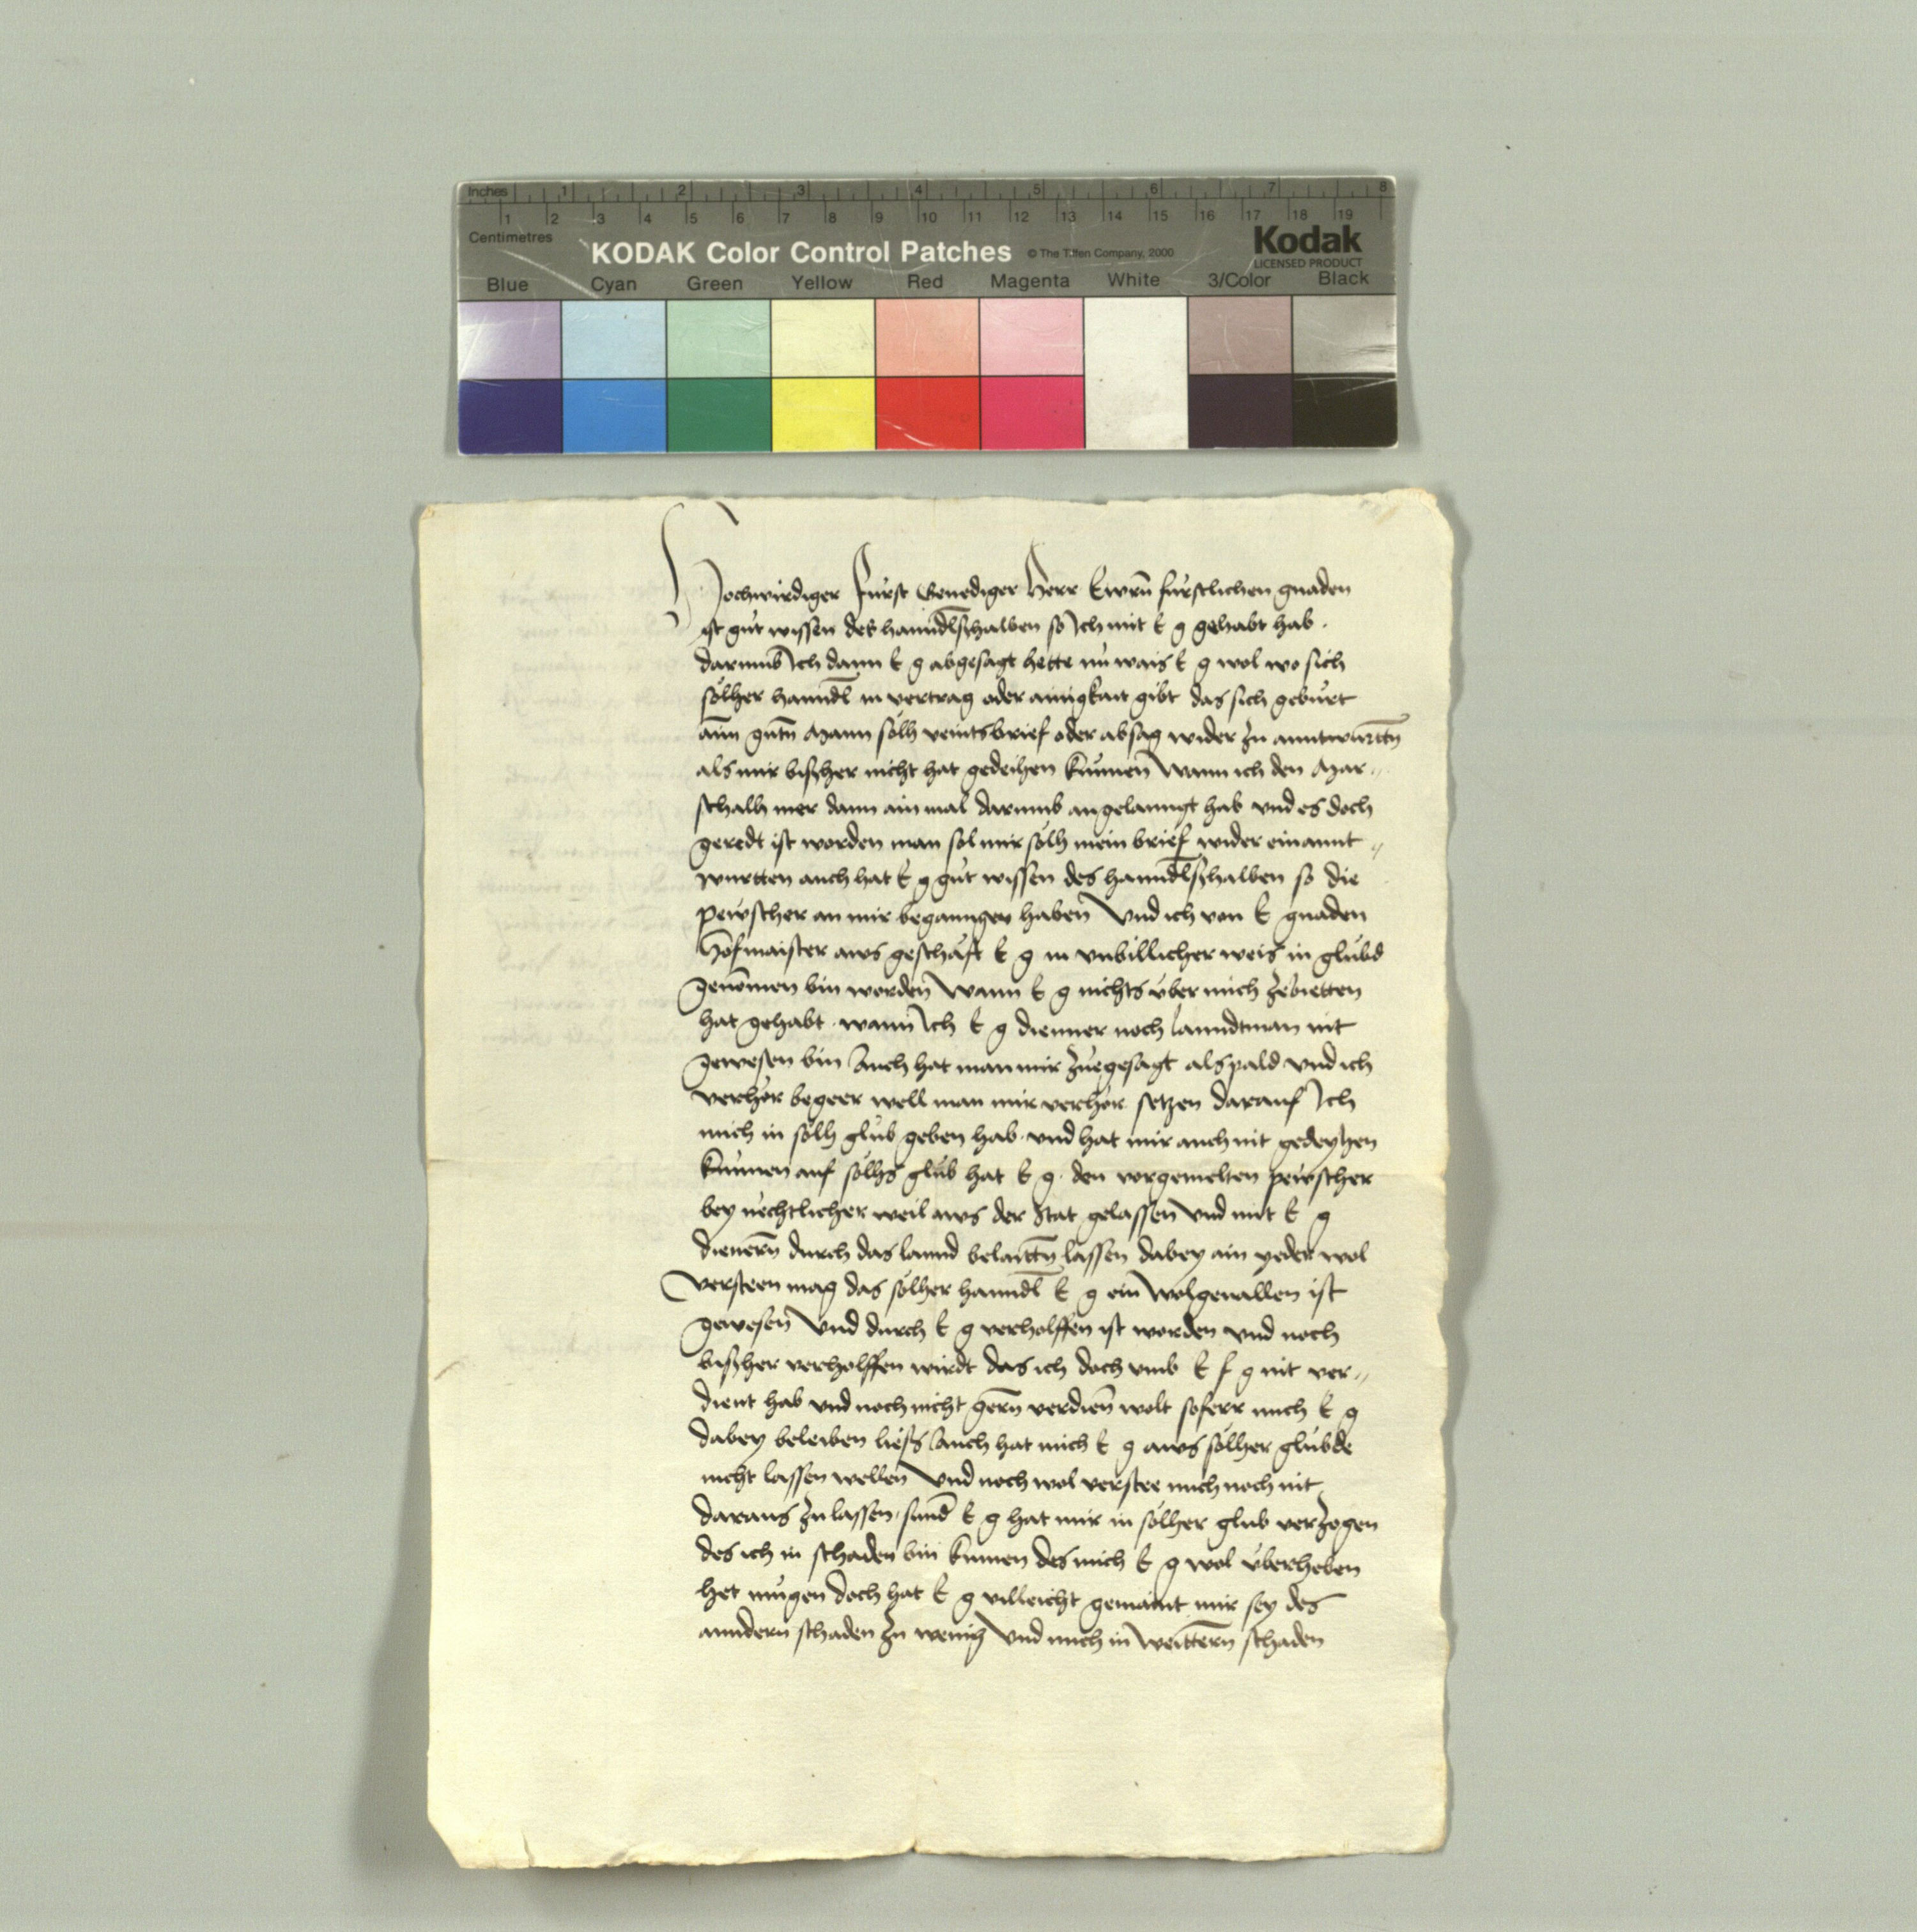 Inches 1 2 3 4 5 6 7 8
1 2 3 4 5 6 7 8 9 10 11 12 13 14 15 16 17 18 19
Centimetres
KODAK Color Control Patches © The Tiffen Company, 2000 Kodak
LICENSED PRODUCT
Blue Cyan Green Yellow Red Magenta White 3/Color Black
Hochwirdiger Fürst Genediger Herr Ewrn fürstlichen gnaden
ist gůt wissen des hanndlshalben so Ich mit E g gehabt hab .
darumb Ich dann E g abgesagt hette nu wais E g wol wo sich
solher hanndl in vertrag oder ainigkait gibt das sich gebürt
aim gutn Mann solh veintsbrief oder absag wider zu anntwurttn
als mir bisher nicht hat gedeihen kumen Wann ich den Mar„
schalh mer dann ain mal darumb angelanngt hab vnd es doch
geredt ist worden man sol mir solh mein brief wider einannt„
wurtten auch hat E g gůt wissen des hanndlshalben so die
pewscher an mir beganngen haben Vnd ich von E gnaden
Hofmaister aws geschäft E g in vnbillicher weis in glubd
genomen bin worden Wann E g nichts über mich zebietten
hat gehabt . wann Ich E g dienner noch lanndtman nit
gewesen bin Auch hat man mir zuegesagt als pald vnd ich
verhör begeer well man mir verhör setzen darauf Ich
mich in solh glub geben hab . vnd hat mir auch nit gedeyhen
kumen auf solhs glub hat E g . den vorgemelten pewscher
bey nechtlicher weil aws der Stat gelassen Vnd mit E g
dienern durch das lannd belaittn lassen dabey ain yeder wol
versteen mag das solher hanndl E g ein wolgeuallen ist
gewesen Vnd durch E g verholffen ist worden vnd noch
bisher verholffen wirdt das ich doch vmb E f g nit ver„
dient hab vnd noch nicht gern verdien wolt soferr mich E g
dabey beleiben liess Auch hat mich E g aws solher glubde
nicht lassen wellen Vnd noch wol verstee mich noch nit
daraus zu lassen . sund E g hat mir in solher glub verzogen
des ich in schaden bin kumen des mich E g wol überheben
het mugen doch hat E g villeicht gemaint mir sey des
anndern schaden zu wenig Vnd mich in weittern schaden